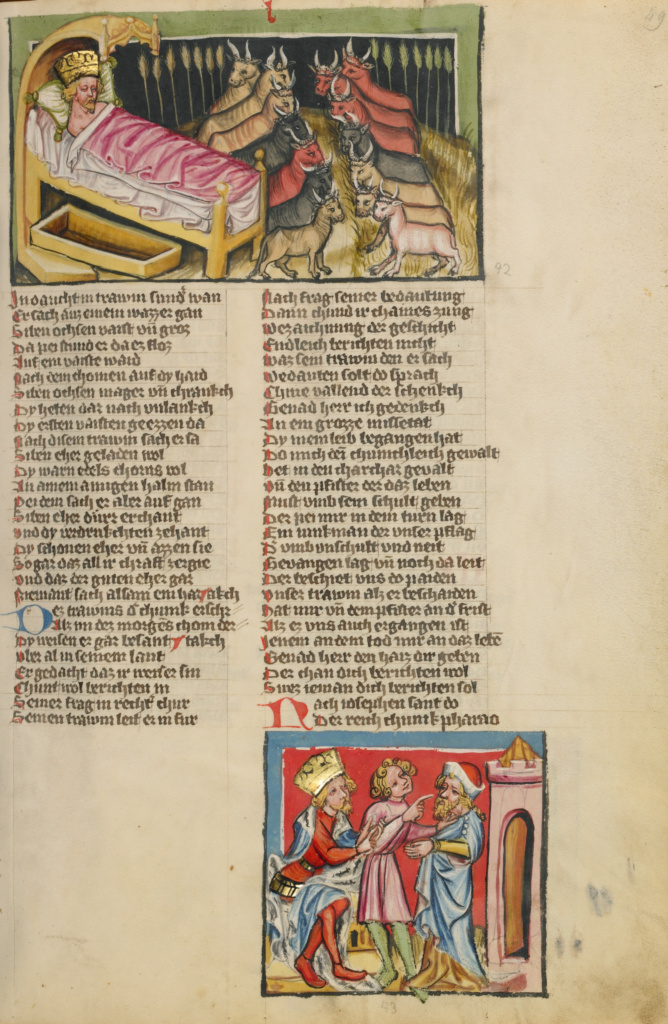 In daucht im trawm sund wan
Er sach auz einem wazzer gan
Siben ochsen vaist vn groz
Da pei stund er da ez floz
Auf ein vaiste waid
Nach dem chomen auf dy haid
Siben ochsen mager vn chrankch
Dy heten dar nach unlankch
Dy ersten vaisten geezzen da
Nach disem trawm sach er sa
Siben eher geladen wol
Dy warn edels chorns vol
An ainem ainigen halm stan
Pei dem sach er aber auf gan
Siben eher durr erchant
Und dy verdrukchten zehant
Dy schonen eher vn azzen sie
So gar daz all ir chraft zergie
Und daz der guten eher gar
Niemant sach allsam ein har
Der trawms d chunk erschr akch
Alz im des morgens chom der takch
Dy weisen er gar besant
Uber al in seinem lant
Er gedacht daz ir weiser sin
Chunt wol berichten in
Seiner frag in recht chur
Seinen trawm leit er in fur
Nach frag seiner bedautung
Dann chund ir chaines zung
Bezaichnung der geschicht
Endleich berichten nicht
Waz sein trawm den er sach
Bedauten solt do sprach
Chnie vallend der schenkch
Genad herr ich gedenkch
An ein grozze missetat
Dy mein leib begangen hat
Do mich den chunichleich gewalt
Het in den charchar gevalt
Vn den pfister der daz leben
Must umb sein schult geben
Der pei mir in dem turn lag
Ein junkman der unser pflag
D umb unschult und neit
Gevangen lag vn noch da leit
Der beschiet uns do paiden
Unser trawm alz er beschaiden
Hat mir vn dem pfister an d frist
Alz ez uns auch ergangen ist
Jenem an dem tod mir an daz lebn
Genad herr den haiz dir geben
Der chan dich berichten wol
Swez ieman dich berichten sol
Nach iosephen sant do
Der reich chunk pharao
92
93